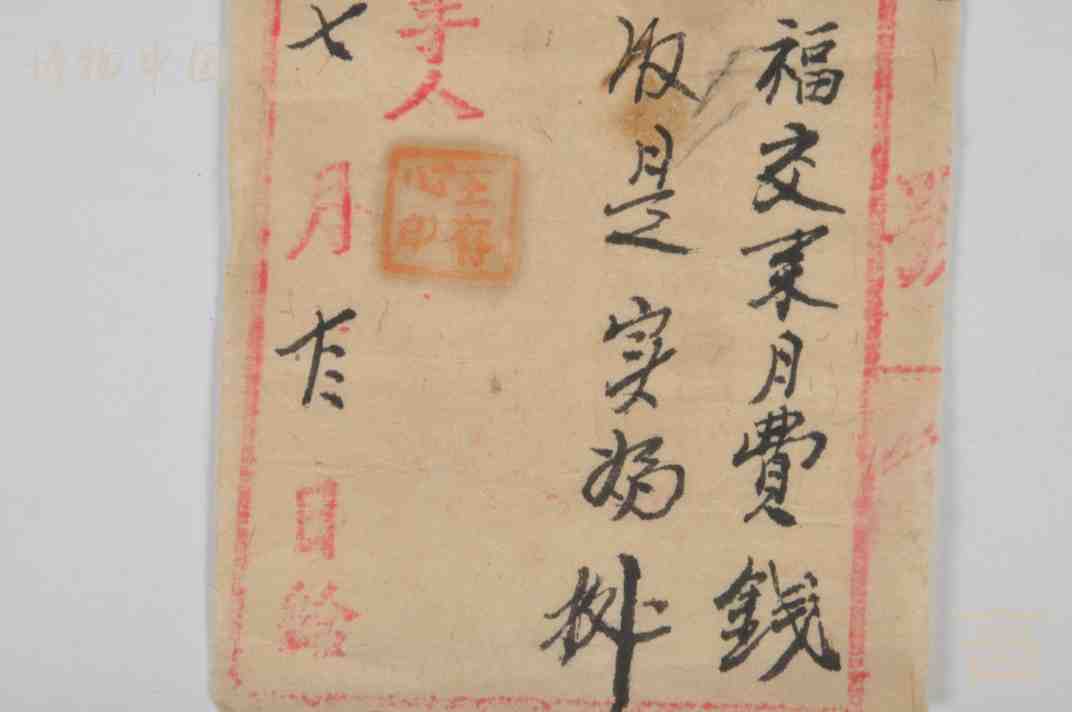 福交来月費錢
收是实為
手人
王存心印
七月 日給
博物中国